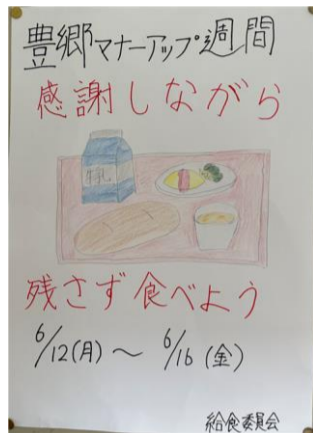 豊郷マナーアップ週間
感謝しながら
牛乳
残さず食べよう
6/12(月)～6/16(金)
給食委員会